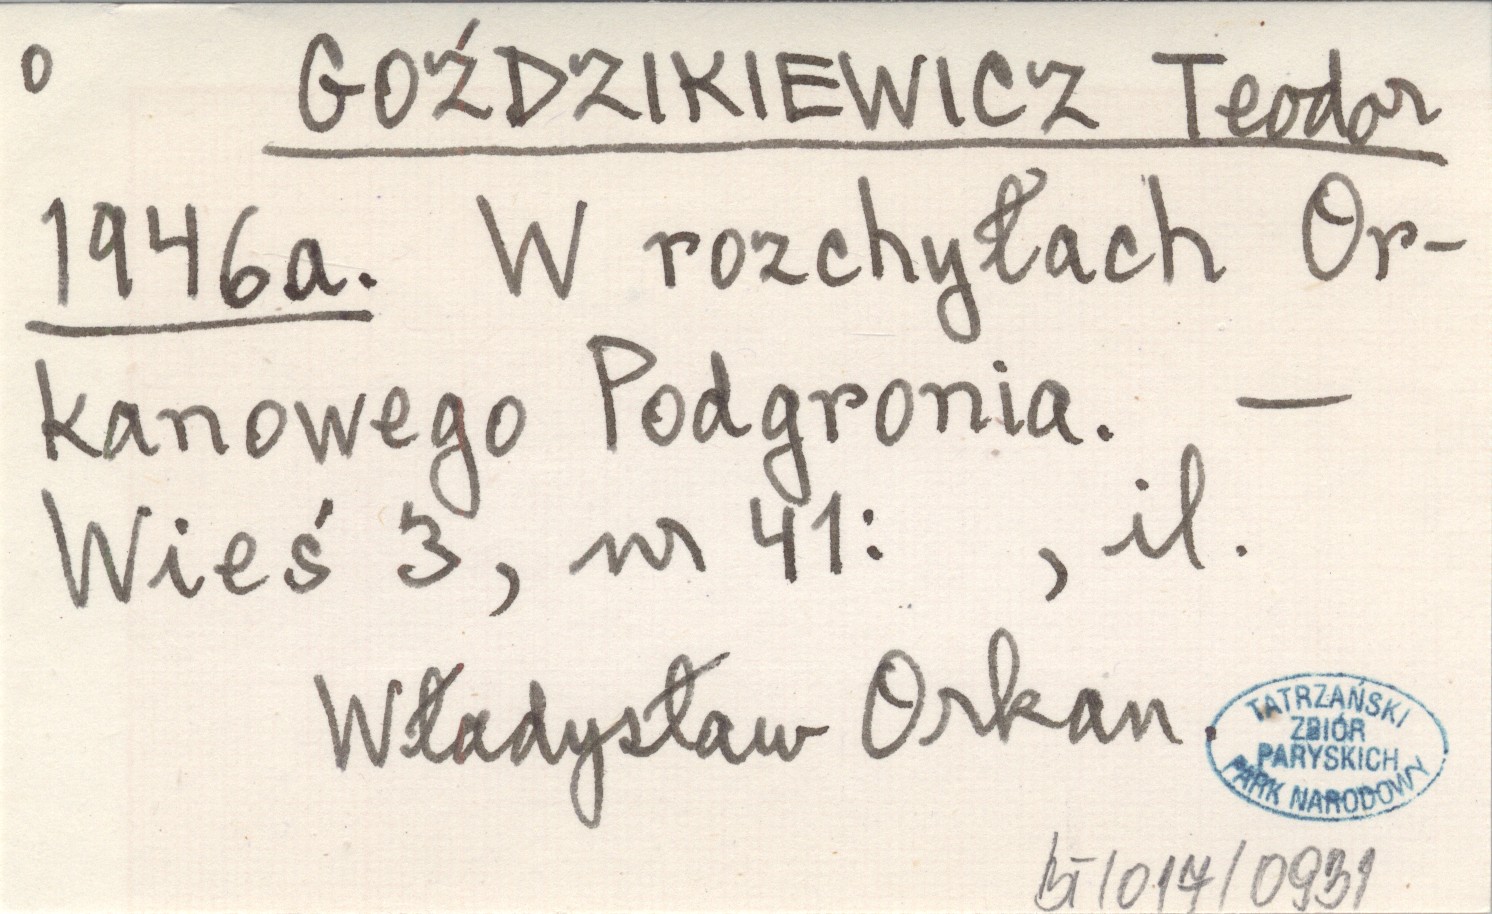 o GOŹDZIKIEWICZ Teodor
1946a. W rozchyłach Or-
kanowego Podgronia. —
Wieś 3, nr 41: , il.
Władysław Orkan.
TATRZAŃSKI
ZBIÓR
PARYSKICH
PARK NARODOWY
/017/0931